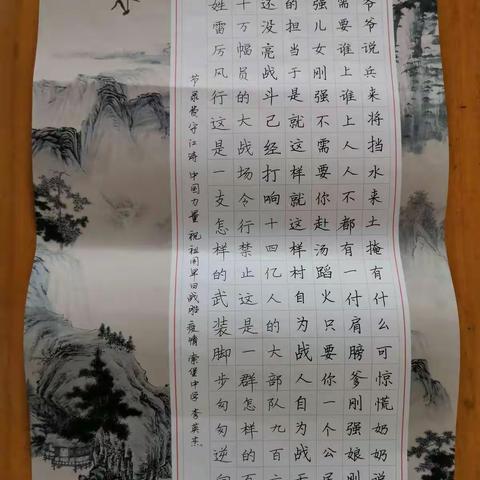 爷爷说兵来将挡水来土掩有什么可惊慌奶奶说
需要谁上谁上人人不都有一付肩膀爹刚强娘刚
强儿女刚强不需要你赴汤蹈火只要你一个公民
的担当于是就这样就这样村自为战人自为战天
还没亮战斗已经打响十四亿人的大部队九百六
十万幅员的大战场令行禁止这是一群怎样的百
姓雷厉风行这是一支怎样的武装脚步匆匆逆向
节录守江诗 中国力量 祝祖国早日战胜疫情 索堡中学 李英杰